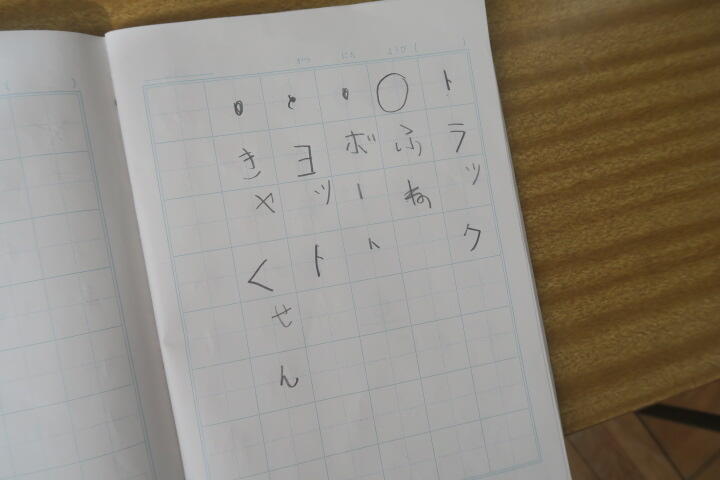 がつ にち ようび( )
トラック
○ふね
・ボート
・ヨット
・きゃくせん